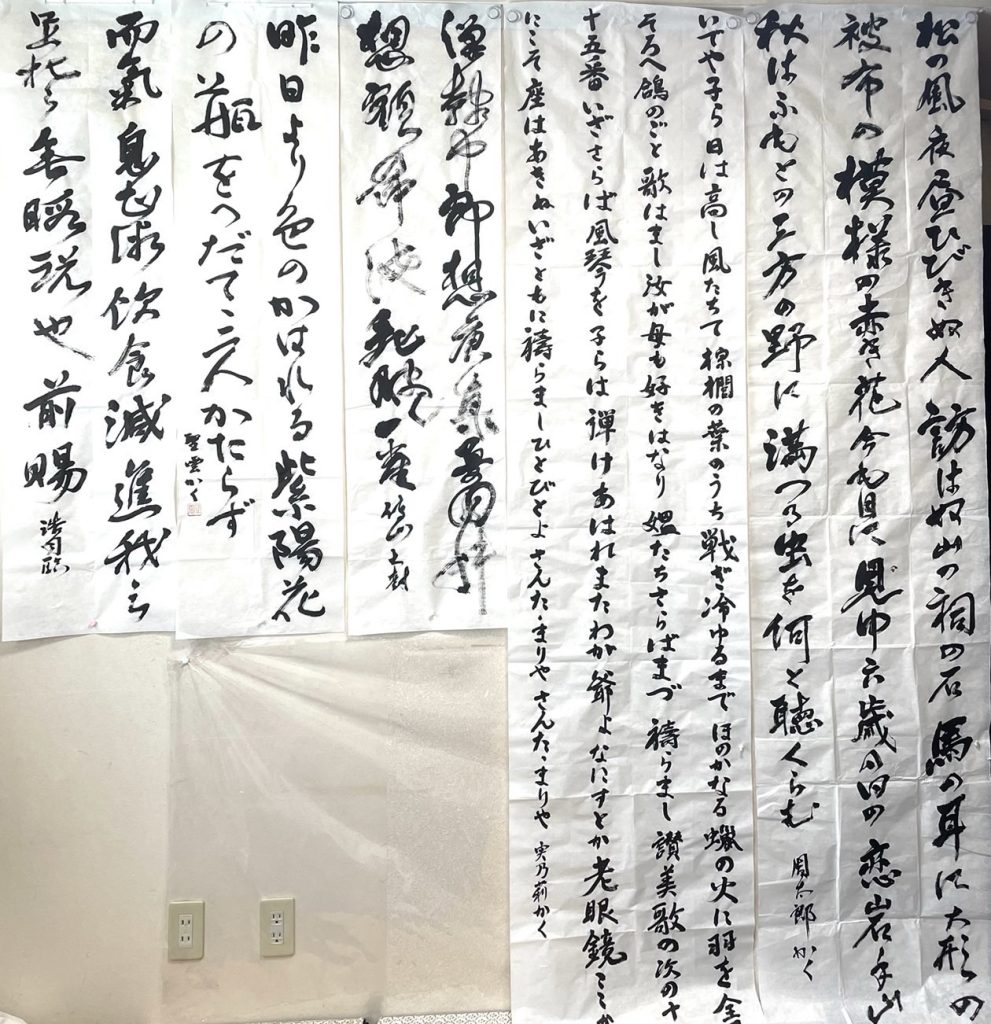 松の風夜昼ひびきぬ人訪はぬ山の祠の石馬の耳に大形の
被布の模様の赤き花今も目に見ゆ六歳の日の恋岩手山
秋はふもとの三方の野に満つる虫を何と聴くらむ 周太郎かく
いでや子ら日は高し風たちて棕櫚の葉のうち戦ぎ冷ゆるまでほのかなる蠟の火に羽を
そろへ鴿のごと歌はまし汝が母も好きはなり媼たちさらばまづ禱らまし讃美歌の次の十
十五番いざさらば風琴を子らは弾けあはれまたわが爺よなにすとか老眼鏡ここ
にこそ座はあきぬいざともに禱らましひとびとよさんたまりやさんたまりや 実乃莉かく
僅執中郎想
想顧
昨日より色のかはれる紫陽花
の瓶をへだてゝ二人かたらず
聖雲かく
而氣息飲食減進我
無暇説也前賜 浩司臨